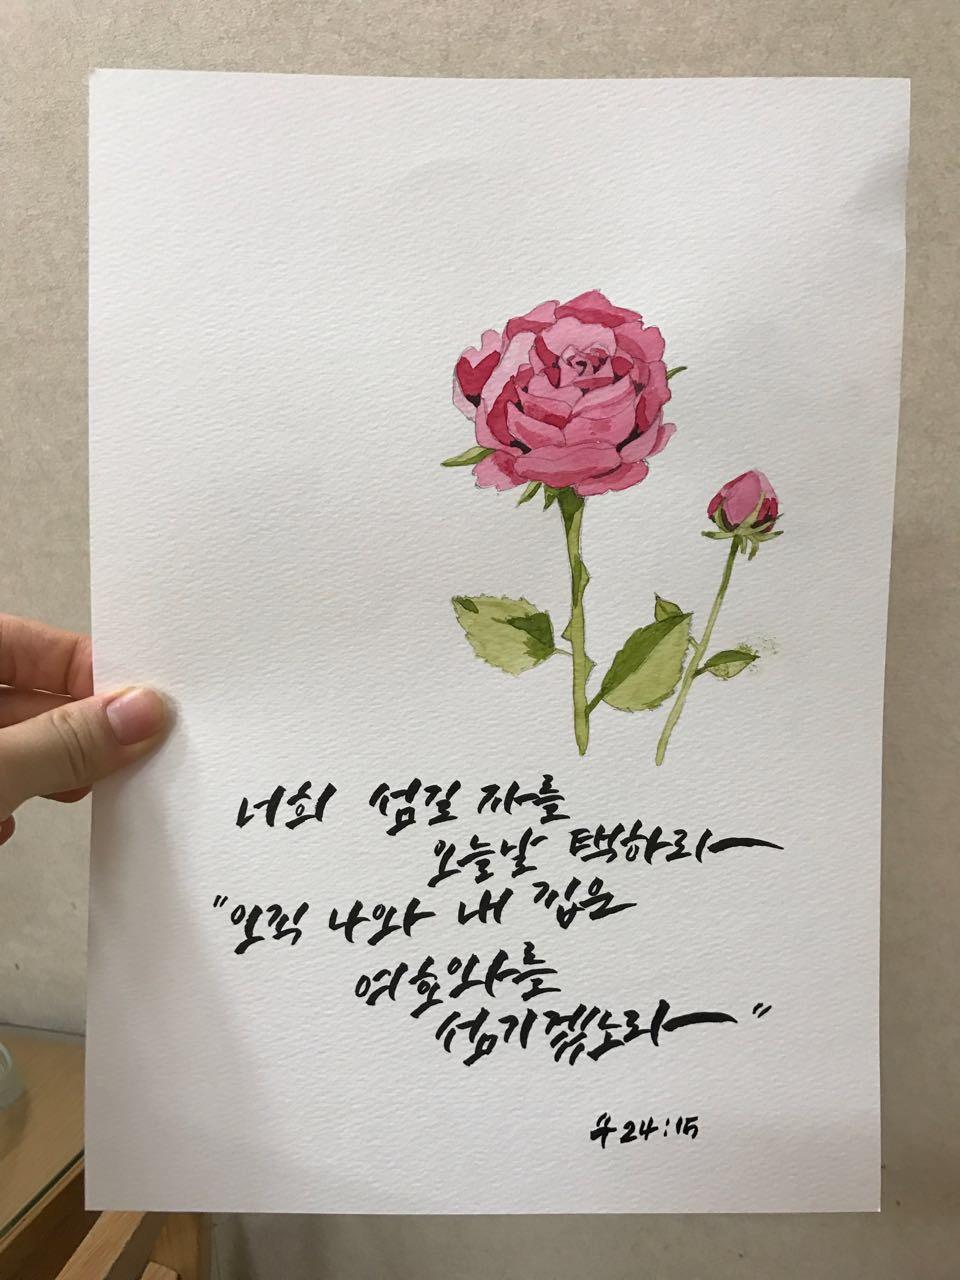 너희 섬길 자를
오늘날 택하라
"오직 나와 내 집은
여호와를
섬기겠노라"
수 24:15